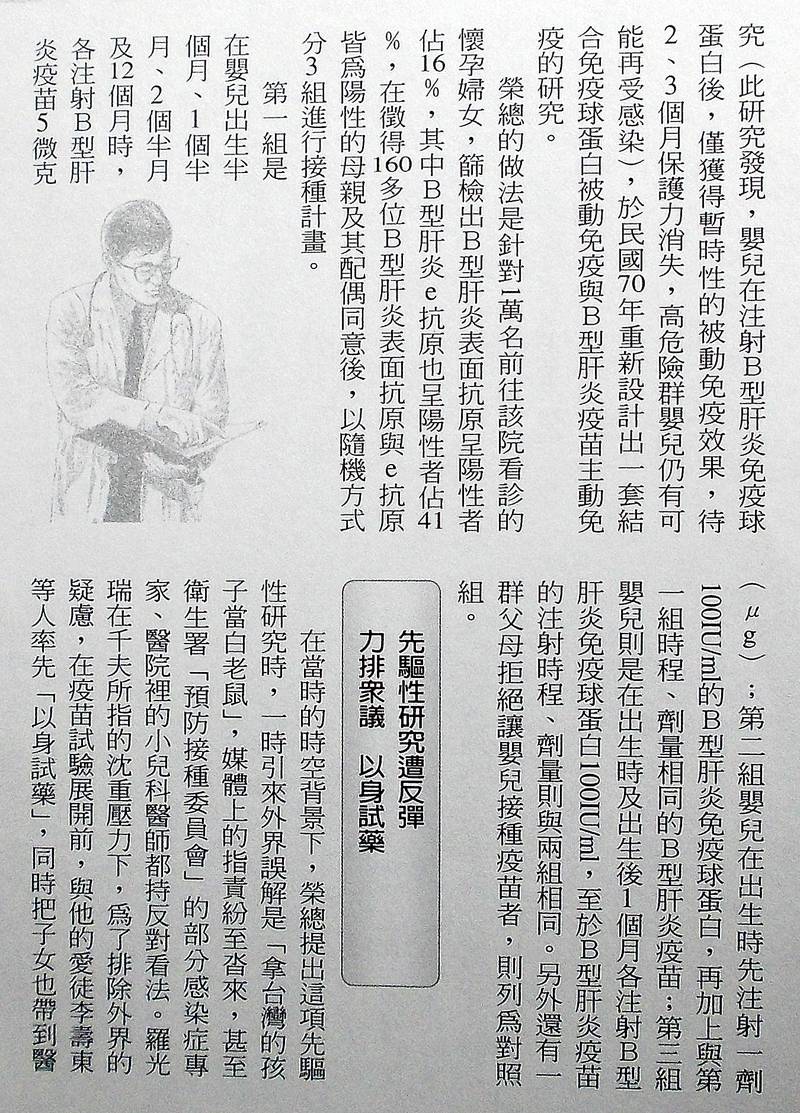 究（此研究發現，嬰兒在注射Ｂ型肝炎免疫球
蛋白後，僅獲得暫時性的被動免疫效果，待
2、3個月保護力消失，高危險群嬰兒仍有可
能再受感染），於民國70年重新設計出一套結
合免疫球蛋白被動免疫與Ｂ型肝炎疫苗主動免
疫的研究。
榮總的做法是針對1萬名前往該院看診的
懷孕婦女，篩檢出Ｂ型肝炎表面抗原呈陽性者
佔16%，其中Ｂ型肝炎ｅ抗原也呈陽性者佔41
%，在徵得160多位Ｂ型肝炎表面抗原與ｅ抗原
皆為陽性的母親及其配偶同意後，以隨機方式
分3組進行接種計畫。
第一組是
在嬰兒出生半
個月、1個半
月、2個半月
及12個月時，
各注射Ｂ型肝
炎疫苗5微克
（μg）；第二組嬰兒在出生時先注射一劑
100IU/ml的Ｂ型肝炎免疫球蛋白，再加上與第
一組時程、劑量相同的Ｂ型肝炎疫苗；第三組
嬰兒則是在出生時及出生後1個月各注射Ｂ型
肝炎免疫球蛋白100IU/ml，至於Ｂ型肝炎疫苗
的注射時程、劑量則與兩組相同。另外還有一
群父母拒絕讓嬰兒接種疫苗者，則列為對照
組。
先驅性研究遭反彈
力排眾議　以身試藥
在當時的時空背景下，榮總提出這項先驅
性研究時，一時引來外界誤解是「拿台灣的孩
子當白老鼠」，媒體上的指責紛至沓來，甚至
衛生署「預防接種委員會」的部分感染症專
家、醫院裡的小兒科醫師都持反對看法。羅光
瑞在千夫所指的沈重壓力下，為了排除外界的
疑慮，在疫苗試驗展開前，與他的愛徒李壽東
等人率先「以身試藥」，同時把子女也帶到醫